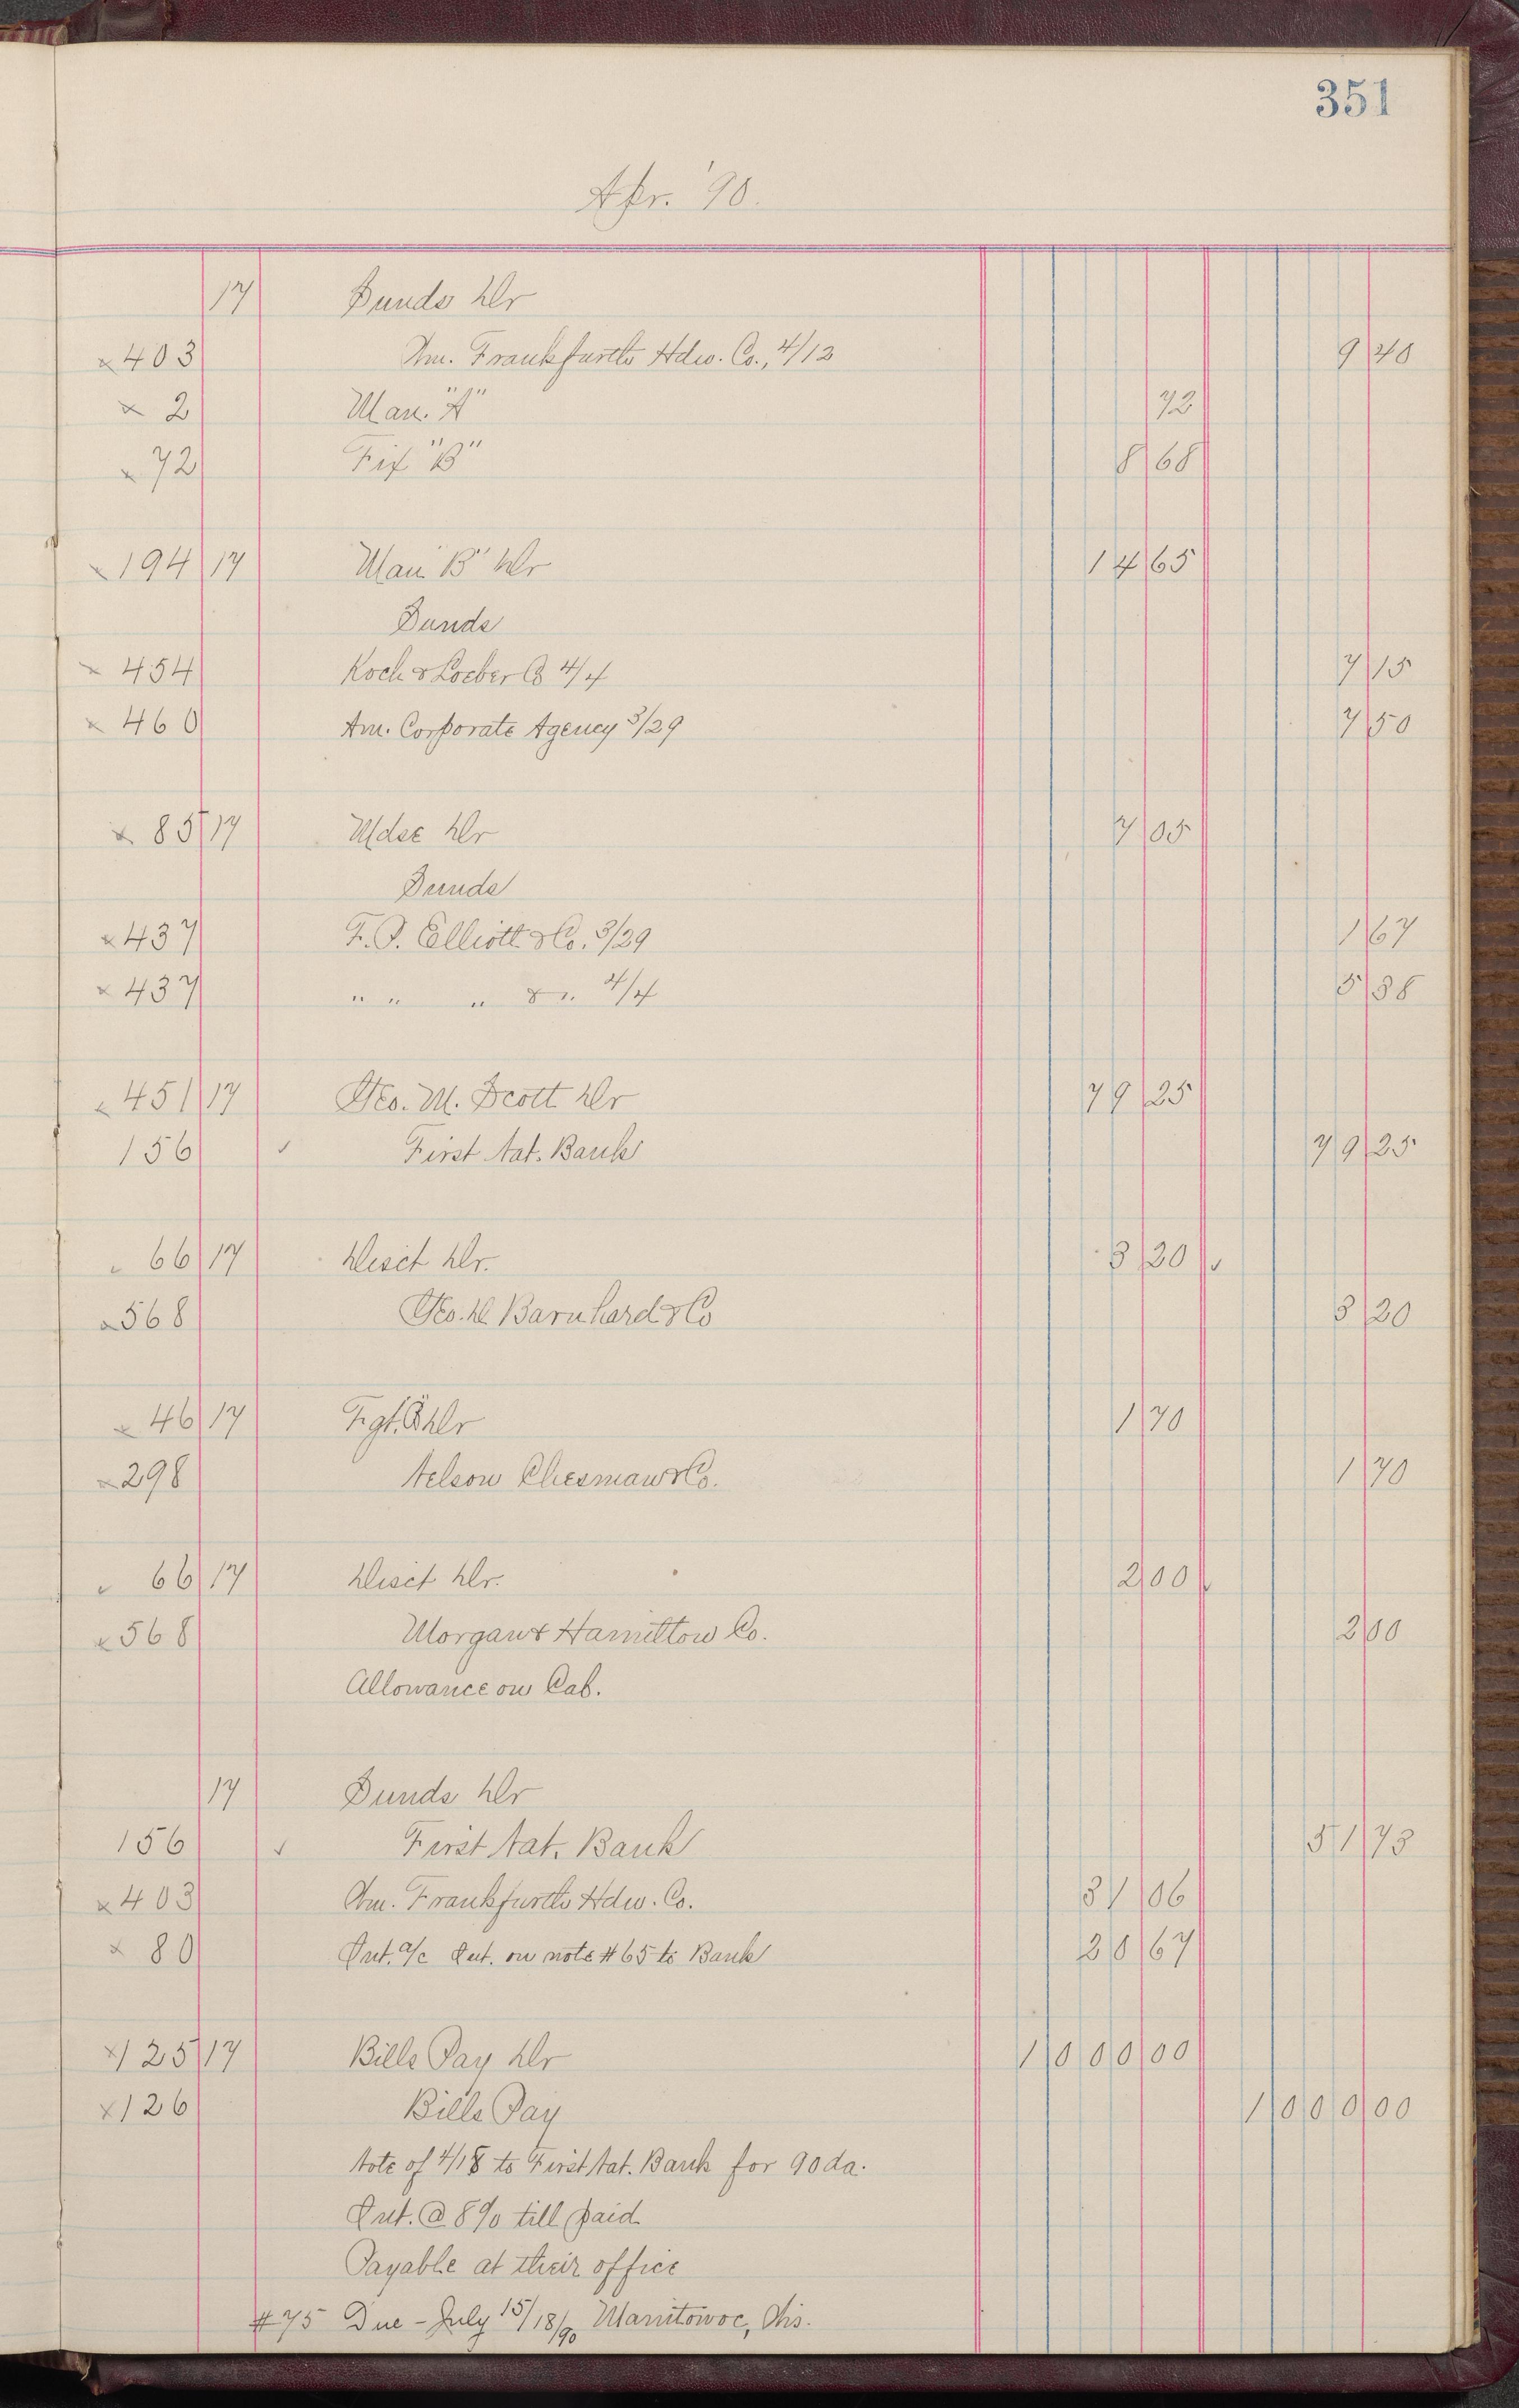 351
Apr. '90.
17 Sunds Dr
x403 Wm. Frankfurth Hdw. Co., 4/12 9 40
x 2 Man. "A" 72
x 72 Fix "B" 8 68
x 194 17 Man "B" Dr 14 65
Sunds
x 454 Koch & Loeber Co 4/4 7 15
x 460 Am. Corporate Agency 3/29 7 50
x 85 17 Mdse Dr 7 05
Sunds
x 437 F. P. Elliott & Co. 3/29 1 67
x 437 " " " & " 4/4 5 38
x 451 17 Geo. M. Scott Dr 79 25
156 ✓ First Nat. Bank 79 25
66 17 Disct Dr. 3 20 ✓
x568 Geo. D Barnhard & Co 3 20
x 46 17 Fgt. "B" Dr 1 70
x298 Nelson Chesman & Co. 1 70
✓ 66 17 Disct Dr. 2 00 ✓
x568 Morgan & Hamilton Co. 2 00
Allowance on Cab.
17 Sunds Dr
156 ✓ First Nat. Bank 51 73
x403 Wm. Frankfurth Hdw. Co. 31 06
x 80 Int. a/c Int. on note #65 to Bank 20 67
x125 17 Bills Pay Dr 1000 00
x126 Bills Pay 1000 00
Note of 4/18 to First Nat. Bank for 90 da.
Int. @ 8% till paid
Payable at their office
#75 Due - July 15/18/90 Manitowoc, Wis.